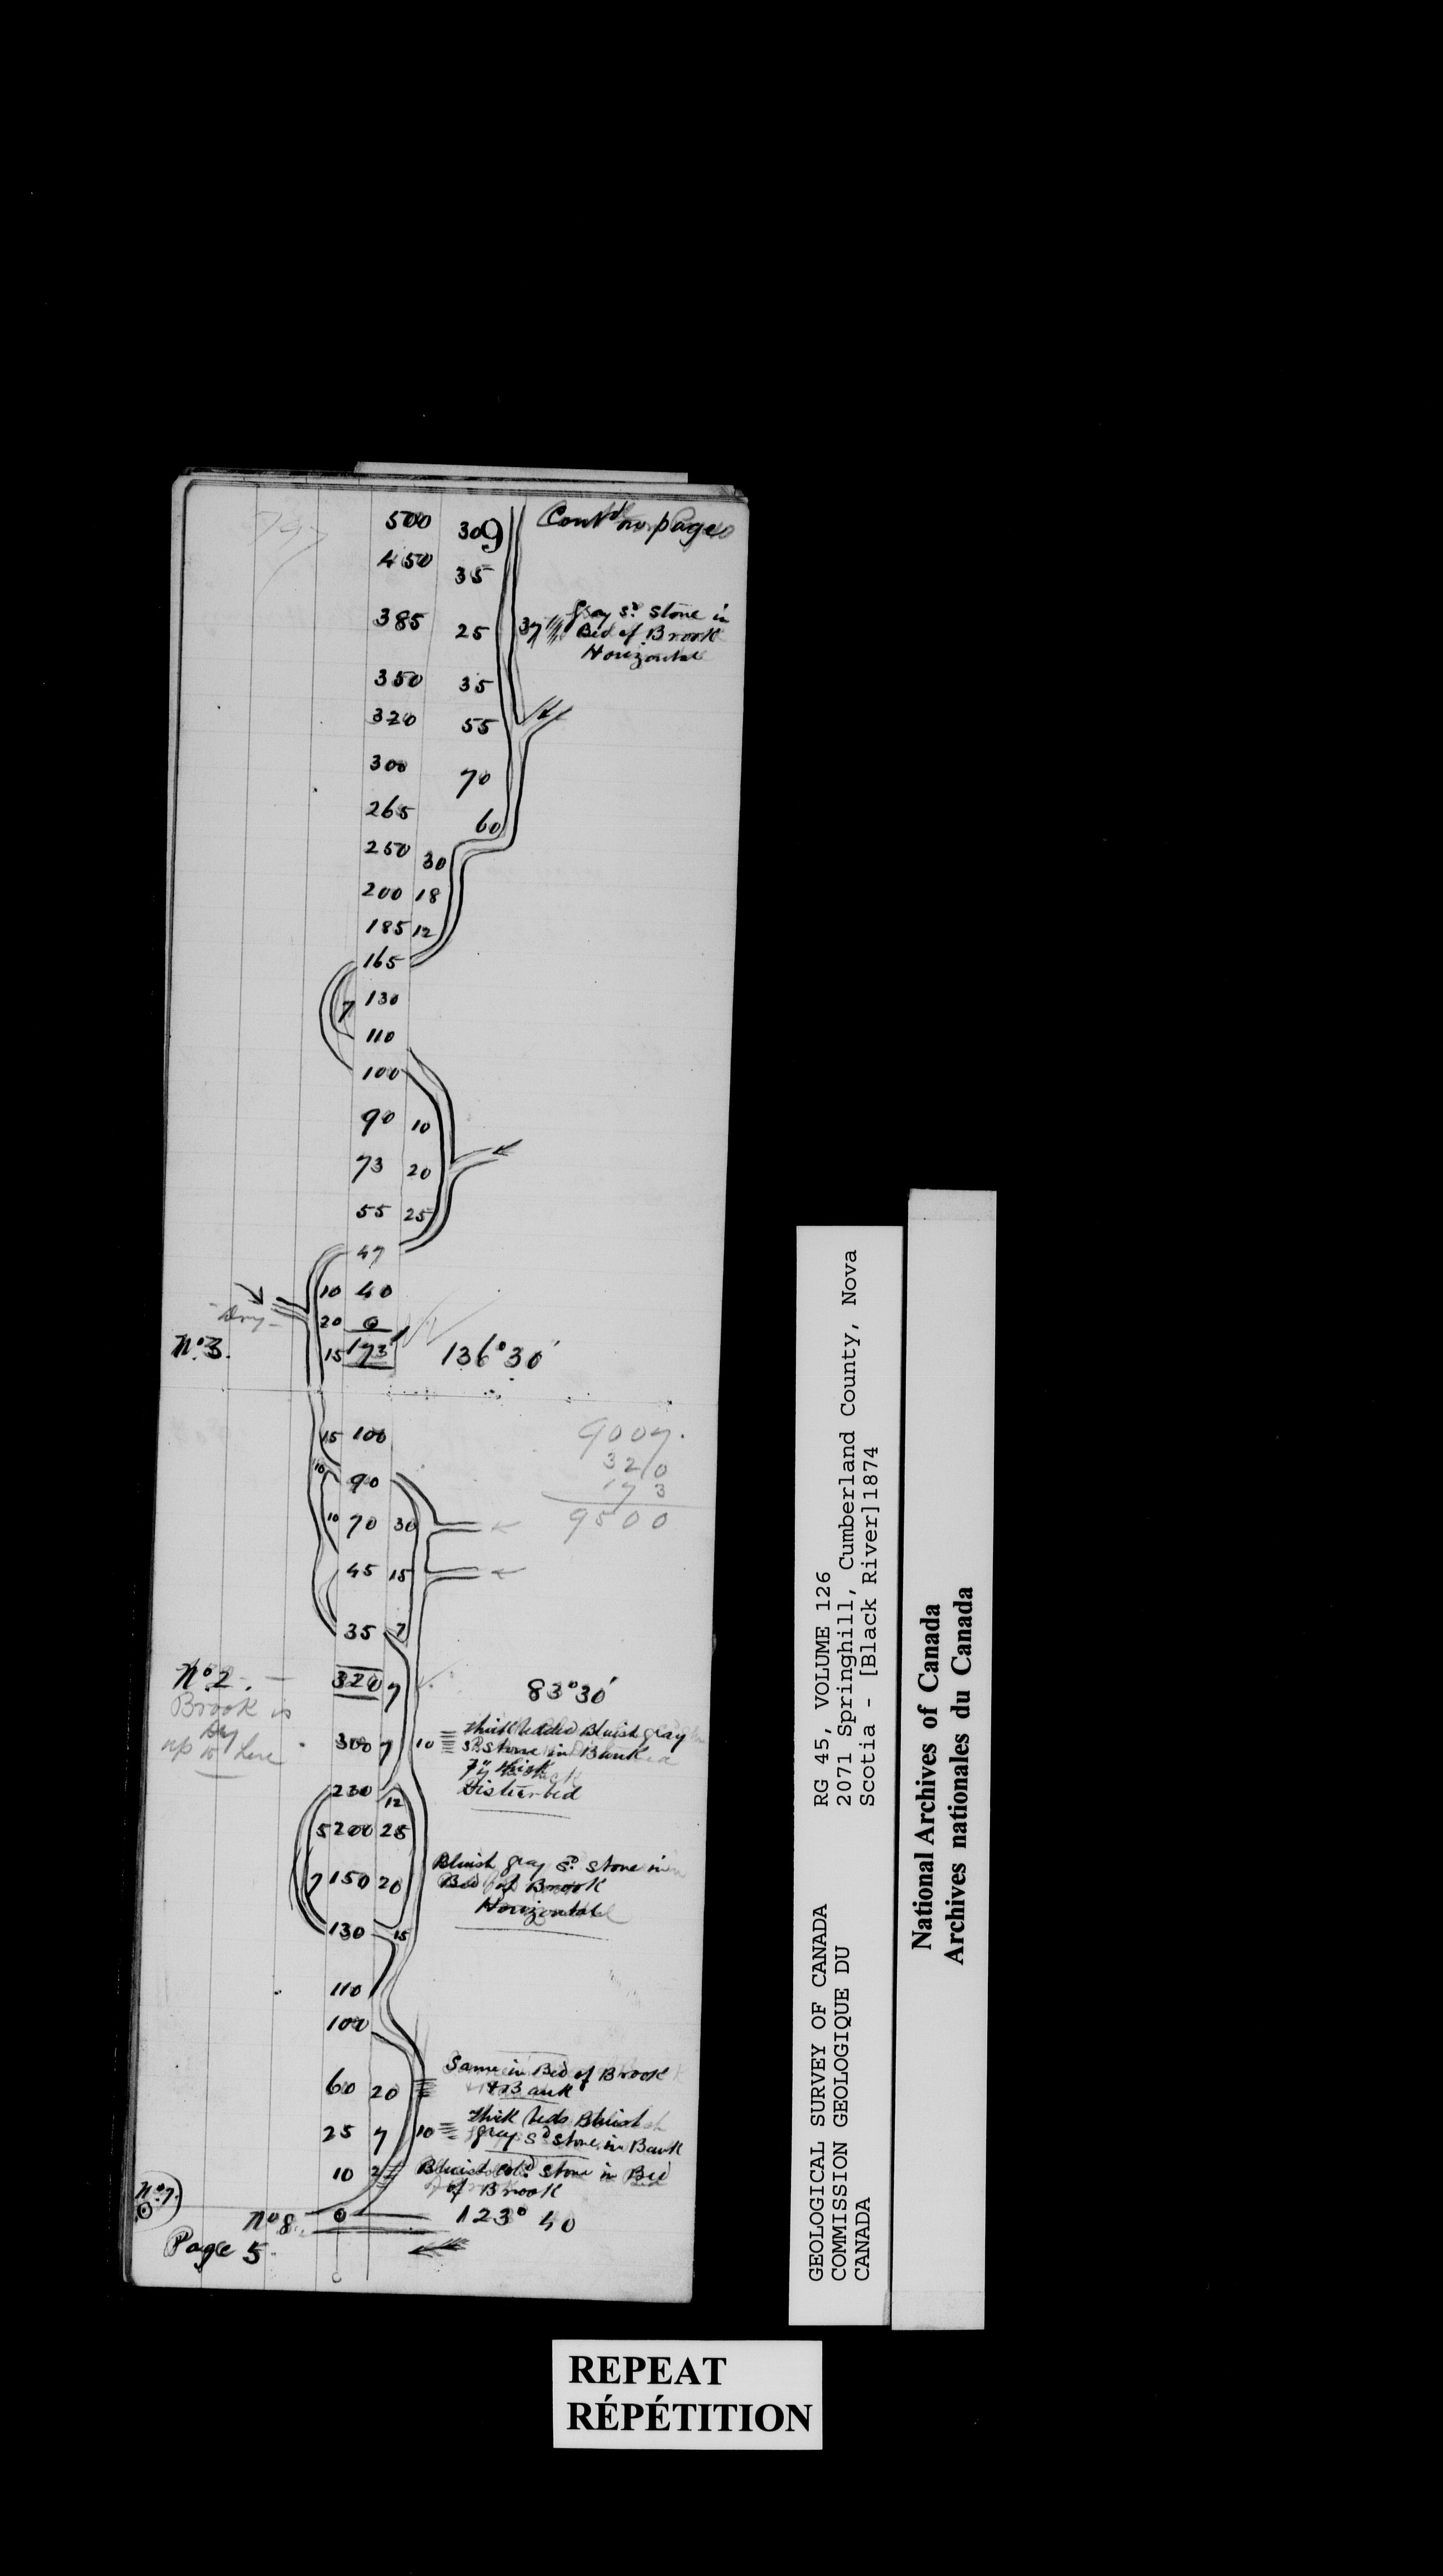 Contd on page
500 309
450 35
385 25 37 Gray sd. stone in
Bed of Brook
Horizontal
350 35
320 55
300 70
265 60
250 30
200 18
185 12
165
7 130
110
100
90 10
73 20
55 25
47
10 40
Dry 20 0
No. 3. 15 173 136°30'
15 100
9007.
320
173
9500
10 90
10 70 30
45 15
35 7
No. 2. 320 7 83°30'
Brook is
Dry
up to here
300 7 10 thick beded Bluish gray
sd. stone in Bank
7" thick
Disturbed
230 12
5 200 25
7 150 20 Bluish gray sd. stone in
Bed of Brook
Horizontal
130 15
110
100
60 20 Same in Bed of Brook
& Bank
25 7 10 thick beds Bluish
gray sd stone in Bank
10 2 Bluish cold. stone in Bed
of Brook
No. 7.
No 8. 0 123° 40
Page 5.
GEOLOGICAL SURVEY OF CANADA RG 45, VOLUME 126
COMMISSION GEOLOGIQUE DU 2071 Springhill, Cumberland County, Nova
CANADA Scotia - [Black River]1874
National Archives of Canada
Archives nationales du Canada
REPEAT
RÉPÉTITION